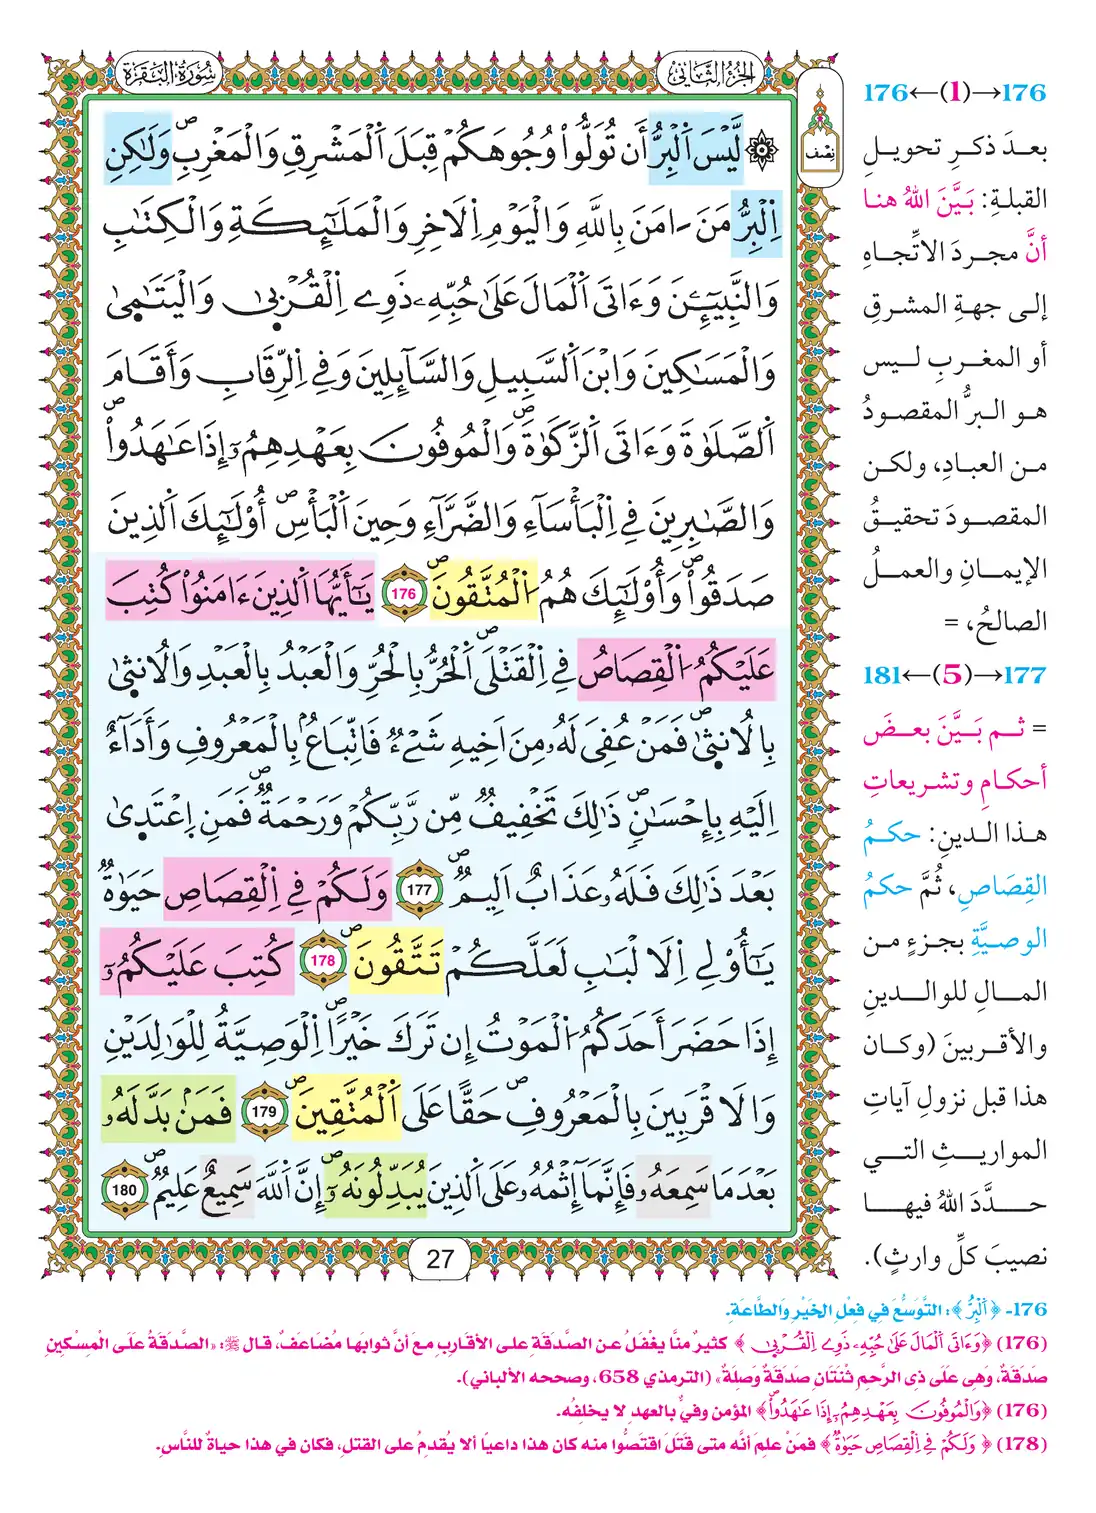 سُورَةُ البَقَرَةِ
الجُزْءُ الثَّانِي
نِصْف
۞ لَّيْسَ اَ۬لْبِرُّ أَن تُوَلُّواْ وُجُوهَكُمْ قِبَلَ اَ۬لْمَشْرِقِ وَالْمَغْرِبِۖ وَلَٰكِنِ
اِ۬لْبِرُّ مَنَ اٰمَنَ بِاللَّهِ وَالْيَوْمِ اِ۬لَاخِرِ وَالْمَلَٰٓئِكَةِ وَالْكِتَٰبِ
وَالنَّبِيٓـِٕۧنَ وَءَاتَى اَ۬لْمَالَ عَلَىٰ حُبِّهِۦ ذَوِے اِ۬لْقُرْبۭىٰ وَالْيَتَٰمۭىٰ
وَالْمَسَٰكِينَ وَابْنَ اَ۬لسَّبِيلِ وَالسَّآئِلِينَ وَفِي اِ۬لرِّقَابِ وَأَقَامَ
اَ۬لصَّلَوٰةَ وَءَاتَى اَ۬لزَّكَوٰةَۖ وَالْمُوفُونَ بِعَهْدِهِمُۥٓ إِذَا عَٰهَدُواْۖ
وَالصَّٰبِرِينَ فِي اِ۬لْبَأْسَآءِ وَالضَّرَّآءِ وَحِينَ اَ۬لْبَأْسِۖ أُوْلَٰٓئِكَ اَ۬لذِينَ
صَدَقُواْۖ وَأُوْلَٰٓئِكَ هُمُ اُ۬لْمُتَّقُونَۖ 176 يَٰٓأَيُّهَا اَ۬لذِينَ ءَامَنُواْ كُتِبَ
عَلَيْكُمُ اُ۬لْقِصَاصُ فِي اِ۬لْقَتْلَىۖ اَ۬لْحُرُّ بِالْحُرِّ وَالْعَبْدُ بِالْعَبْدِ وَالُانثۭىٰ
بِالُانثۭىٰۖ فَمَنْ عُفِيَ لَهُۥ مِنَ اَخِيهِ شَےْءٞ فَاتِّبَاعُۢ بِالْمَعْرُوفِ وَأَدَآءٌ
اِلَيْهِ بِإِحْسَٰنٖۖ ذَٰلِكَ تَخْفِيفٞ مِّن رَّبِّكُمْ وَرَحْمَةٞۖ فَمَنِ اِ۪عْتَدۭىٰ
بَعْدَ ذَٰلِكَ فَلَهُۥ عَذَابٌ اَلِيمٞۖ 177 وَلَكُمْ فِي اِ۬لْقِصَاصِ حَيَوٰةٞ
يَٰٓأُوْلِي اِ۬لَالْبَٰبِ لَعَلَّكُمْ تَتَّقُونَۖ 178 كُتِبَ عَلَيْكُمُۥٓ
إِذَا حَضَرَ أَحَدَكُمُ اُ۬لْمَوْتُ إِن تَرَكَ خَيْراًۖ اِ۬لْوَصِيَّةُ لِلْوَٰلِدَيْنِ
وَالَاقْرَبِينَ بِالْمَعْرُوفِۖ حَقّاً عَلَى اَ۬لْمُتَّقِينَۖ 179 فَمَنۢ بَدَّلَهُۥ
بَعْدَ مَا سَمِعَهُۥ فَإِنَّمَآ إِثْمُهُۥ عَلَى اَ۬لذِينَ يُبَدِّلُونَهُۥٓۖ إِنَّ اَ۬للَّهَ سَمِيعٌ عَلِيمٞۖ 180
27
176→(1)←176
بعدَ ذكرِ تحويلِ
القبلةِ: بَيَّنَ اللهُ هنا
أنَّ مجردَ الاتِّجاهِ
إلى جهةِ المشرقِ
أو المغربِ ليس
هو البرُّ المقصودُ
من العبادِ، ولكن
المقصودَ تحقيقُ
الإيمانِ والعملُ
الصالحُ، =
177→(5)←181
= ثم بَيَّنَ بعضَ
أحكامِ وتشريعاتِ
هذا الدينِ: حكمُ
القِصَاصِ، ثُمَّ حكمُ
الوصيَّةِ بجزءٍ من
المالِ للوالدينِ
والأقربينَ (وكان
هذا قبل نزولِ آياتِ
المواريثِ التي
حدَّدَ اللهُ فيها
نصيبَ كلِّ وارثٍ).
176- ﴿اَ۬لْبِرُّ﴾: التَّوَسُّعَ فِي فِعْلِ الخَيْرِ وَالطَّاعَةِ.
(176) ﴿وَءَاتَى اَ۬لْمَالَ عَلَىٰ حُبِّهِۦ ذَوِے اِ۬لْقُرْبۭىٰ﴾ كثيرٌ منَّا يغْفَلُ عن الصَّدَقَةِ على الأقاربِ معَ أنَّ ثوابَهَا مُضَاعَفٌ، قال ﷺ: «الصَّدَقَةُ عَلَى المِسْكِينِ
صَدَقَةٌ، وَهِيَ عَلَى ذِي الرَّحِمِ ثِنْتَانِ صَدَقَةٌ وَصِلَةٌ» (الترمذي 658، وصححه الألباني).
(176) ﴿وَالْمُوفُونَ بِعَهْدِهِمُۥٓ إِذَا عَٰهَدُواْۖ﴾ المؤمن وفيٌّ بالعهدِ لا يخلِفُه.
(178) ﴿وَلَكُمْ فِي اِ۬لْقِصَاصِ حَيَوٰةٞ﴾ فمَنْ علِمَ أنَّه متى قَتَلَ اقتَصُّوا منه كان هذا داعيًا ألا يُقدمُ على القتلِ، فكان في هذا حياةٌ للنَّاسِ.